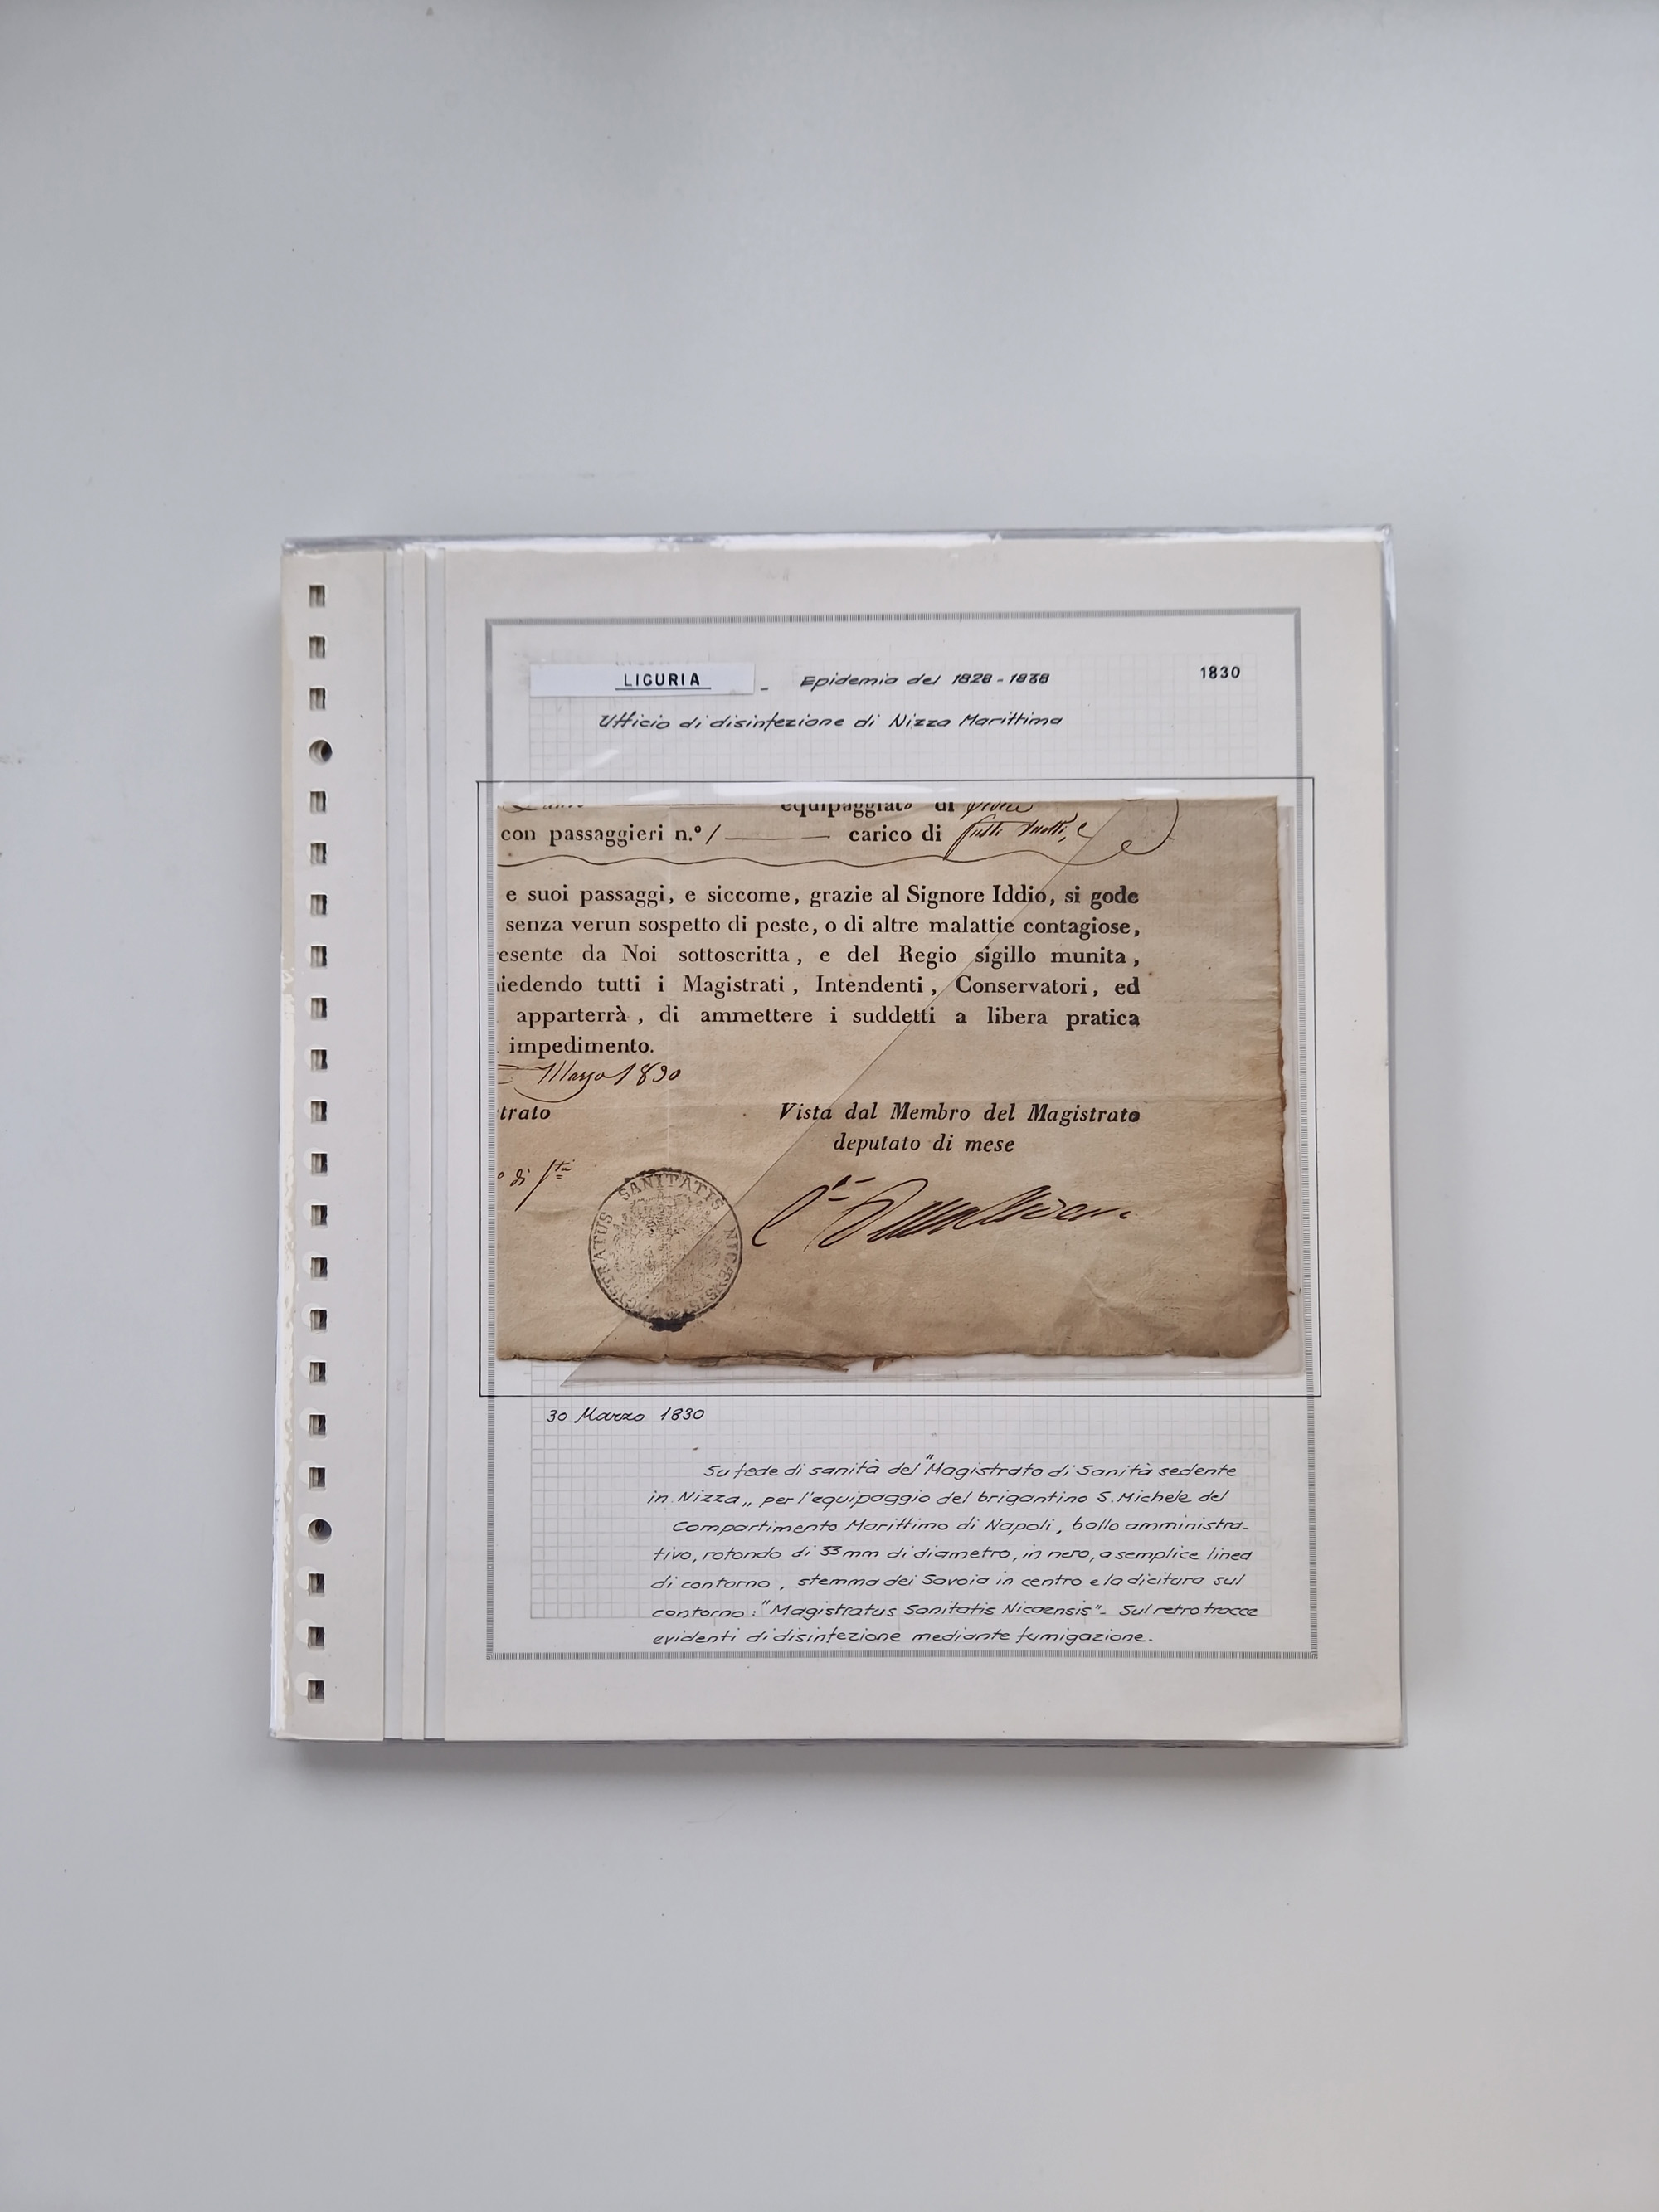 LIGURIA - Epidemia del 1828-1838 1830
Ufficio di disinfezione di Nizza Marittima
equipaggiato di
con passaggieri n.º / carico di
e suoi passaggi, e siccome, grazie al Signore Iddio, si gode
senza verun sospetto di peste, o di altre malattie contagiose,
esente da Noi sottoscritta, e del Regio sigillo munita,
iedendo tutti i Magistrati, Intendenti, Conservatori, ed
apparterrà, di ammettere i suddetti a libera pratica
impedimento.
Marzo 1830
trato
Vista dal Membro del Magistrato
deputato di mese
o di
MAGISTRATUS SANITATIS NICÆNSIS
30 Marzo 1830
Su fede di sanità del "Magistrato di Sanità sedente
in Nizza„ per l'equipaggio del brigantino S. Michele del
Compartimento Marittimo di Napoli, bollo amministra-
tivo, rotondo di 33 mm di diametro, in nero, a semplice linea
di contorno, stemma dei Savoia in centro e la dicitura sul
contorno: "Magistratus Sanitatis Nicaensis"- Sul retro tracce
evidenti di disinfezione mediante fumigazione.